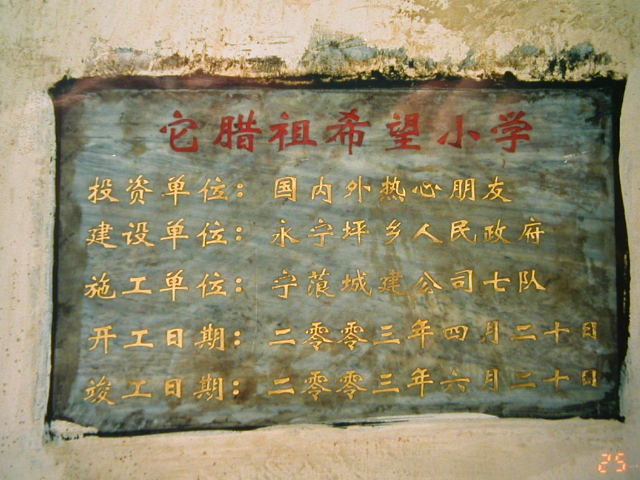 它腊祖希望小学
投资单位：国内外热心朋友
建设单位：永宁坪乡人民政府
施工单位：宁蒗城建公司七队
开工日期：二零零三年四月二十日
竣工日期：二零零三年六月二十日
25